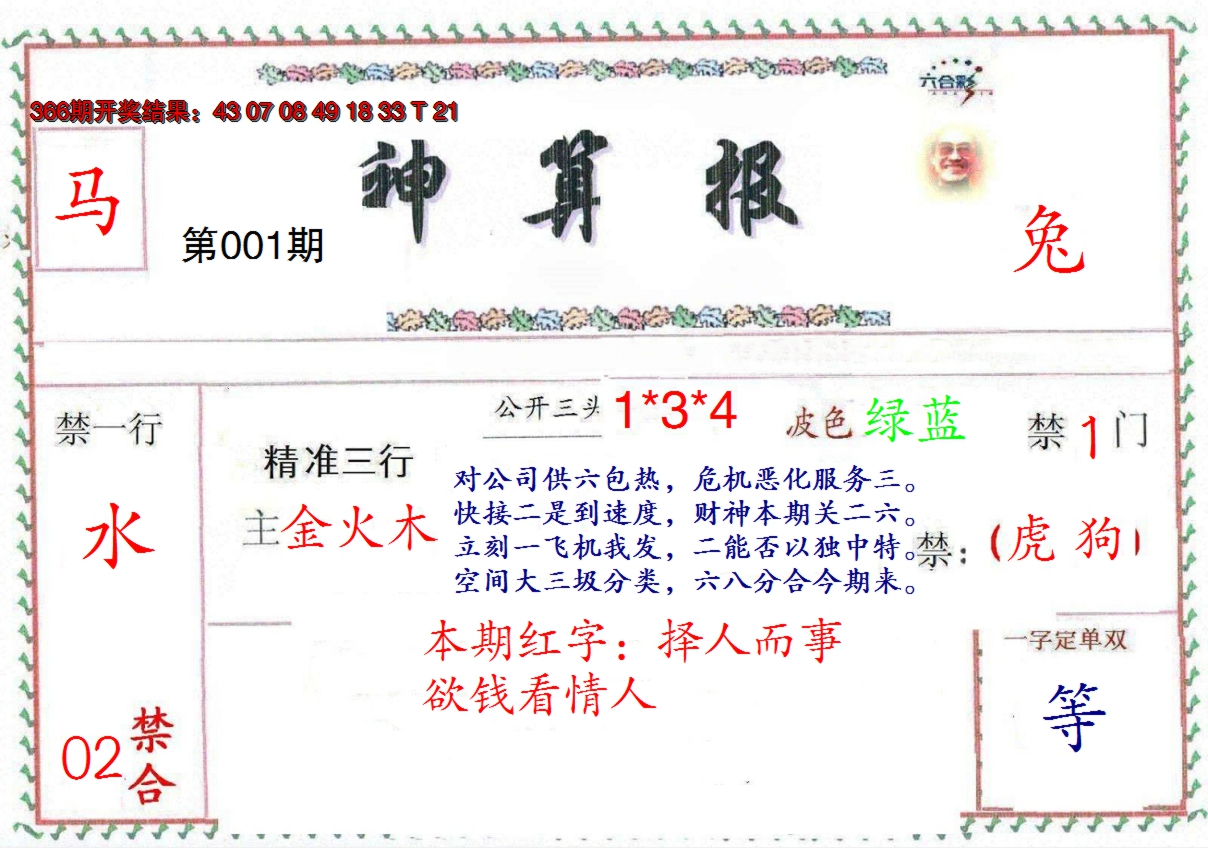 六合彩
366期开奖结果：43 07 08 49 18 33 T 21
马
神算报
第001期
兔
禁一行
水
02禁合
公开三头 1*3*4
波色 绿蓝
禁1门
精准三行
主金火木
对公司供六包热，危机恶化服务三。
快接二是到速度，财神本期关二六。
立刻一飞机我发，二能否以独中特。
空间大三圾分类，六八分合今期来。
禁：（虎 狗）
本期红字：择人而事
欲钱看情人
一字定单双
等